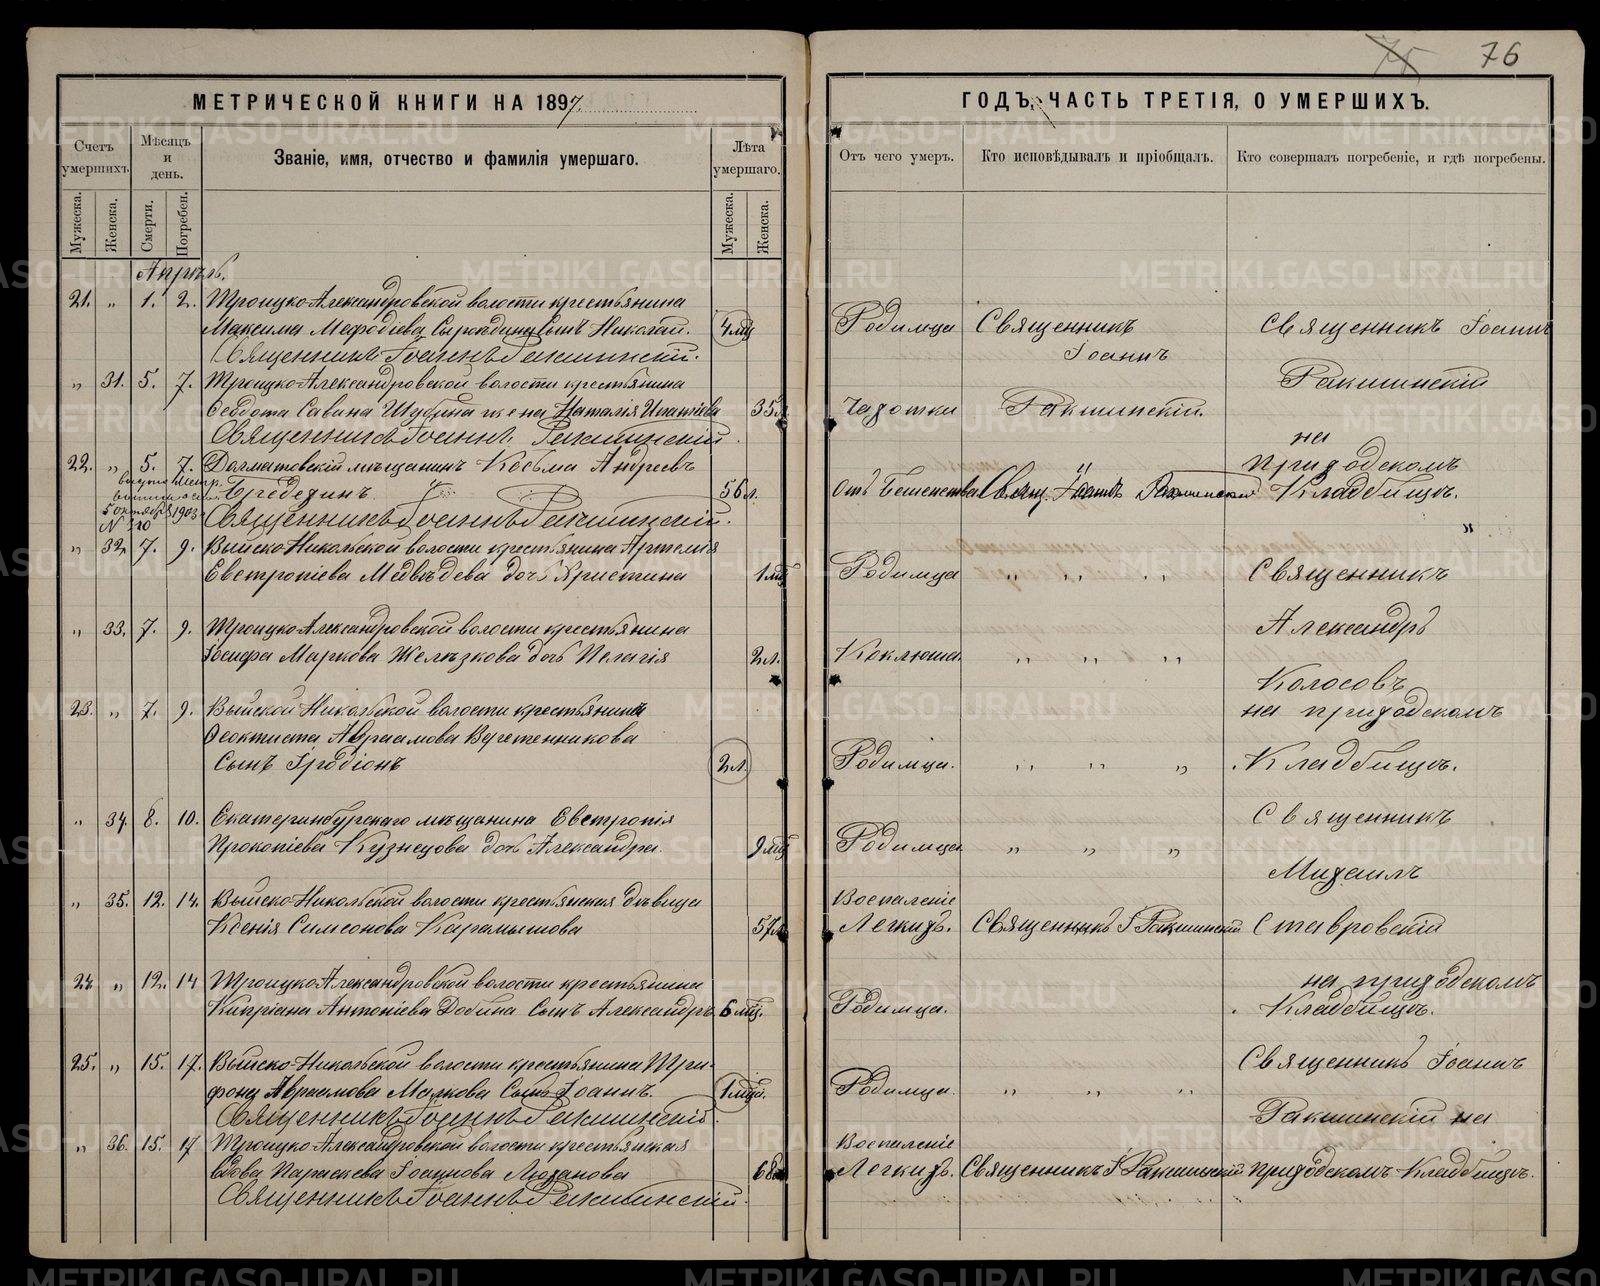 76
МЕТРИЧЕСКОЙ КНИГИ НА 1897.
ГОДЪ, ЧАСТЬ ТРЕТІЯ, О УМЕРШИХЪ.
Счетъ умершихъ.
Мѣсяцъ и день.
Званіе, имя, отчество и фамилія умершаго.
Лѣта умершаго.
Отъ чего умеръ.
Кто исповѣдывалъ и пріобщалъ.
Кто совершалъ погребеніе, и гдѣ погребены.
Мужеска.
Женска.
Смерти.
Погребен.
Мужеска.
Женска.
Апрѣль.
21. " 1. 2. Троицко-Александровской волости крестьянина
Максима Мефодіева сынъ Николай. 4 мц Родимца Священникъ Священникъ Іоаннъ
Священникъ Іоаннъ Ракшинскій. Іоаннъ
" 31. 5. 7. Троицко-Александровской волости крестьянина Ракшинскій
Ѳеодота Савина Шубина жена Наталія Ипатіева 35 л. Чахотки Ракшинскій.
Священникъ Іоаннъ Ракшинскій. на
22. " 5. 7. Далматовскій мѣщанинъ Косьма Андреевъ приходскомъ
Бередединъ 56 л. Отъ Бешенства Свящ. Іоаннъ Ракшинскій Кладбищѣ.
5 октября 1903
N 310
Священникъ Іоаннъ Ракшинскій. "
" 32. 7. 9. Выйско-Никольской волости крестьянина Артемія
Евстропіева Медвѣдева дочь Христина 1 мц Родимца " " " Священникъ
" 33. 7. 9. Троицко-Александровской волости крестьянина Александръ
Іосифа Маркова Желѣзкова дочь Пелагія 2 л. Коклюша. " " "
Колосовъ
23. " 7. 9. Выйской Никольской волости крестьянина на приходскомъ
Ѳеоктиста Авраамова Веретенникова
Сынъ Іродіонъ 2 л. Родимца. " " " Кладбищѣ.
" 34. 8. 10. Екатеринбургскаго мѣщанина Евстропія Священникъ
Прокопіева Кузнецова дочь Александра. 9 мц Родимца " " "
Михаилъ
" 35. 12. 14. Выйско-Никольской волости крестьянская дѣвица Воспаленіе
Ксенія Симеонова Карамышова 57 л. Легкихъ. Священникъ І Ракшинскій Ставровскій
24. " 12. 14 Троицко-Александровской волости крестьянина на приходскомъ
Кипріана Антоніева Добина Сынъ Александръ 6 мц. Родимца. Кладбищѣ.
25. " 15. 17. Выйско-Никольской волости крестьянина Три- Священникъ Іоаннъ
фона Авраамова Малкова Сынъ Іоаннъ. 1 мц. Родимца. " " "
Священникъ Іоаннъ Ракшинскій. Ракшинскій на
" 36. 15. 17 Троицко-Александровской волости крестьянская Воспаленіе
вдова Параскева Іоаннова Люханова 68 Легкихъ. Священникъ І Ракшинскій приходскомъ Кладбищѣ.
Священникъ Іоаннъ Ракшинскій.
METRIKI.GASO-URAL.RU